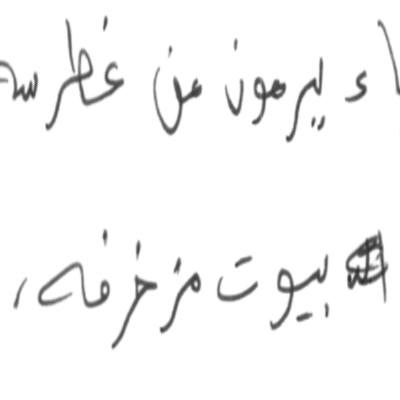 يرمون من غطرسه
بيوت مزخرفه،